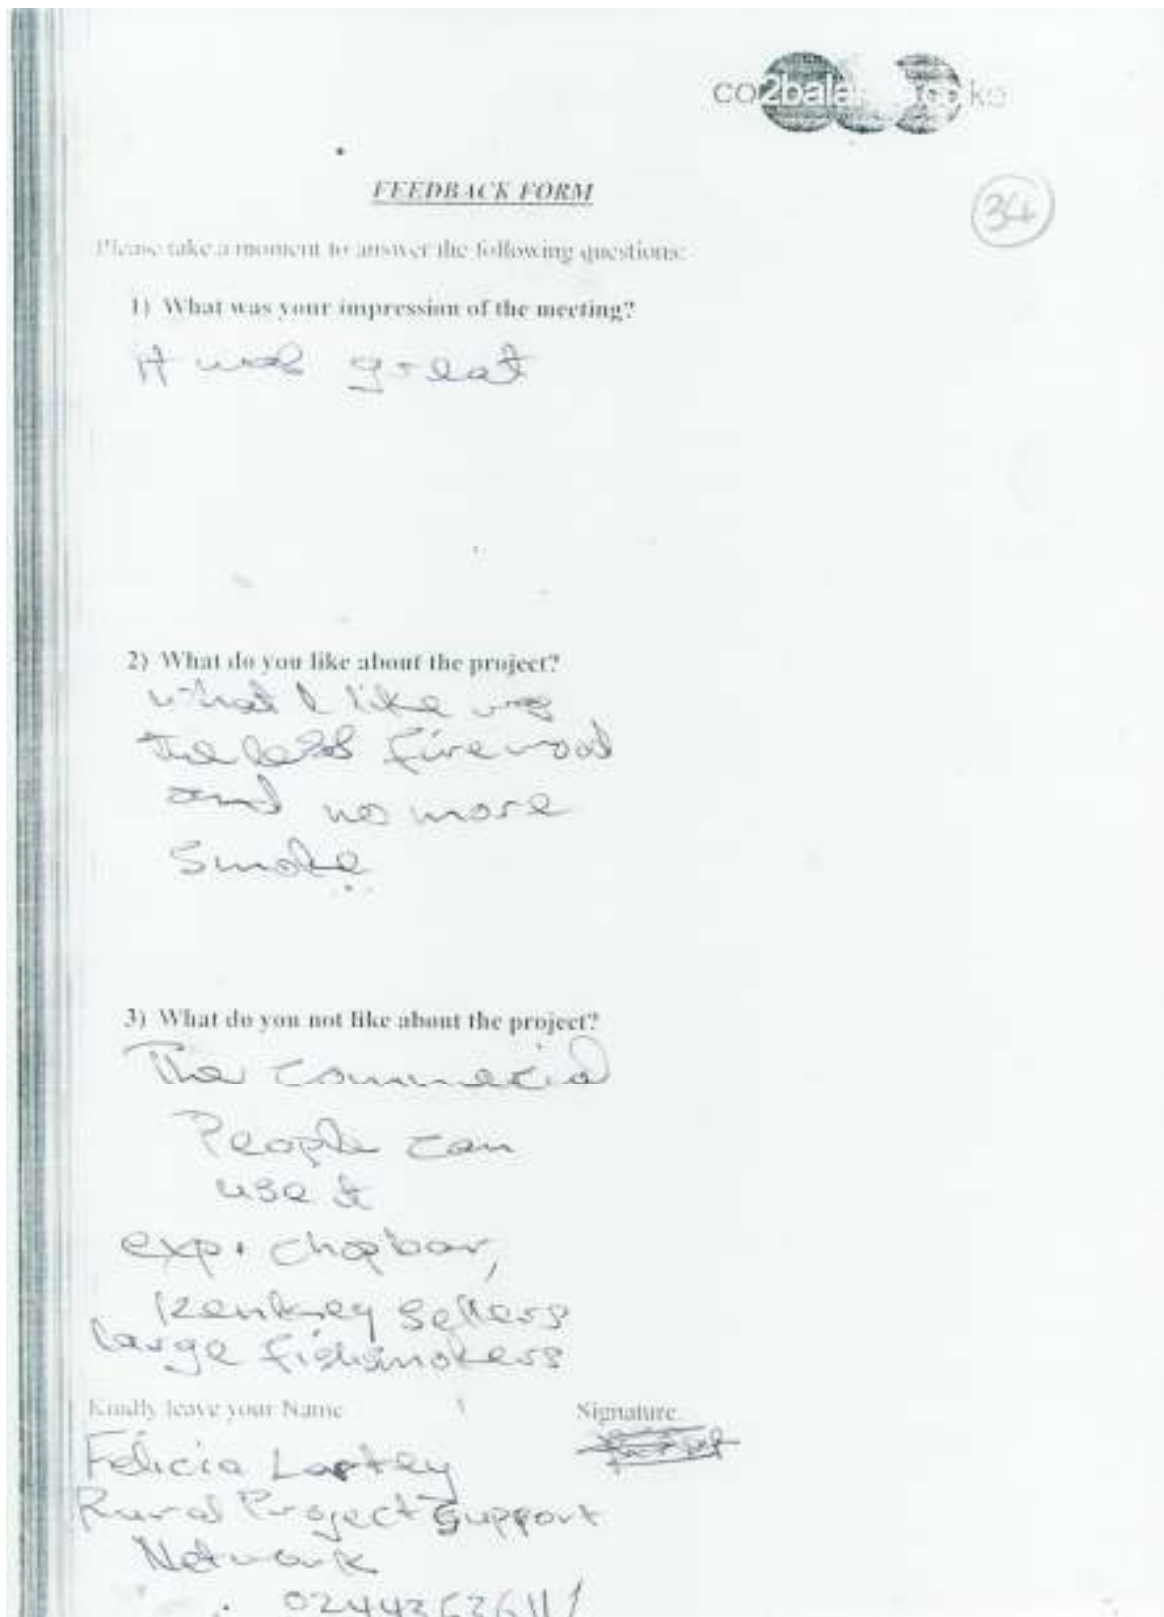 co2bala
FEEDBACK FORM
34
Please take a moment to answer the following questions:
1) What was your impression of the meeting?
It was great
2) What do you like about the project?
what I like was
the less firewood
and no more
Smoke
3) What do you not like about the project?
The commecial
People can
use it
exp. chopbar,
Kenkey sellers
large fishsmokers
Kindly leave your Name
Signature
Felicia Lartey
Rural Project Support
Network